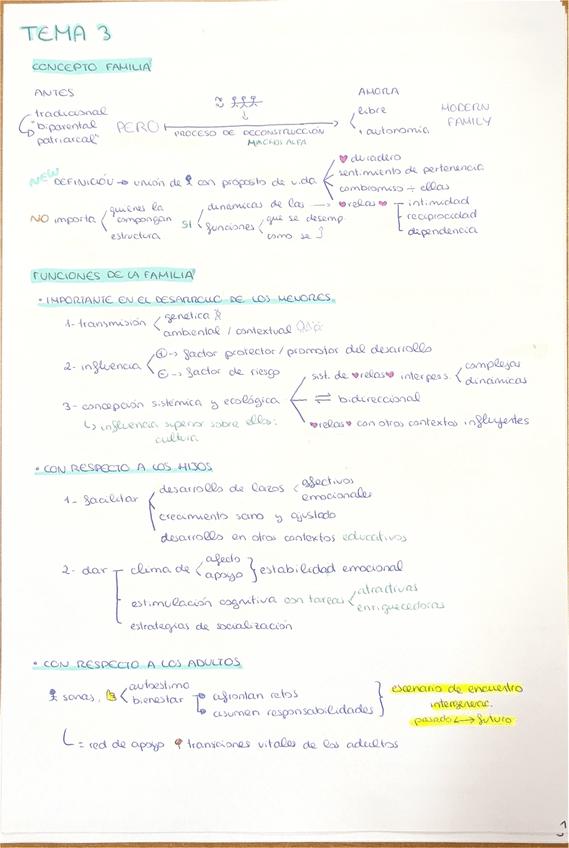 TEMA 3
CONCEPTO FAMILIA
ANTES
AHORA
tradicional
"biparental
patriarcal"
PERO
PROCESO DE DECONSTRUCCIÓN
MACHOS ALFA
libre
+ autonomía
MODERN
FAMILY
NEW DEFINICIÓN → unión de con proposto de vida
duradero
sentimiento de pertenencia
compromiso ÷ ellas
NO importa
quienes la
compongan
estructura
SI
dinámicas de las → relas
funciones
que se desemp.
como se
intimidad
reciprocidad
dependencia
FUNCIONES DE LA FAMILIA
• IMPORTANTE EN EL DESARROLLO DE LOS MENORES
1- transmisión
genética
ambiental / contextual
2- influencia
+ → factor protector / promotor del desarrollo
- → factor de riesgo
3- concepción sistémica y ecológica
sist. de relas interpess.
complejas
dinámicas
⇌ bidireccional
relas con otros contextos influyentes
↳ influencia superior sobre ellos:
cultura
• CON RESPECTO A LOS HIJOS
1- facilitar
desarrollo de lazos
afectivos
emocionales
crecimiento sano y ajustado
desarrollo en otros contextos educativos
2- dar
clima de
afecto
apoyo
} estabilidad emocional
estimulación cognitiva con tareas
atractivas
enriquecedoras
estrategias de socialización
• CON RESPECTO A LOS ADULTOS
sanas,
autoestima
bienestar
afrontan retos
asumen responsabilidades
escenario de encuentro
intergenerac.
pasado ↔ futuro
= red de apoyo transiciones vitales de los adultos
1